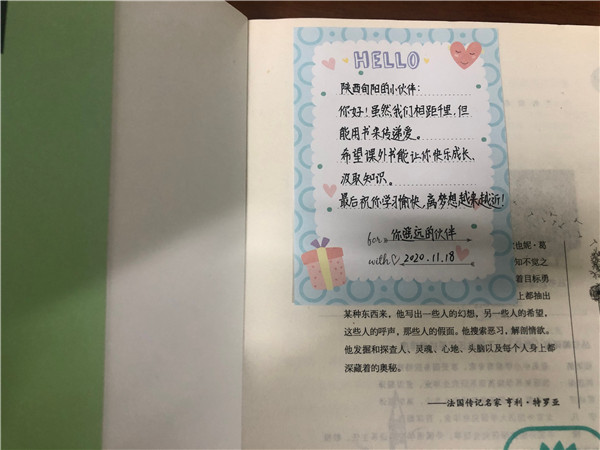 HELLO
陕西旬阳的小伙伴:
你好!虽然我们相距千里,但
能用书来传递爱。
希望课外书能让你快乐成长、
汲取知识。
最后祝你学习愉快,离梦想越来越近!
for 你遥远的伙伴
with 2020.11.18
也妮·葛
知不觉之
着目标勇
上都抽出
某种东西来,他写出一些人的幻想,另一些人的希望,
这些人的呼声,那些人的假面。他搜索恶习,解剖情欲。
他发掘和探查人、灵魂、心地、头脑以及每个人身上都
深藏着的奥秘。
——法国传记名家 亨利·特罗亚